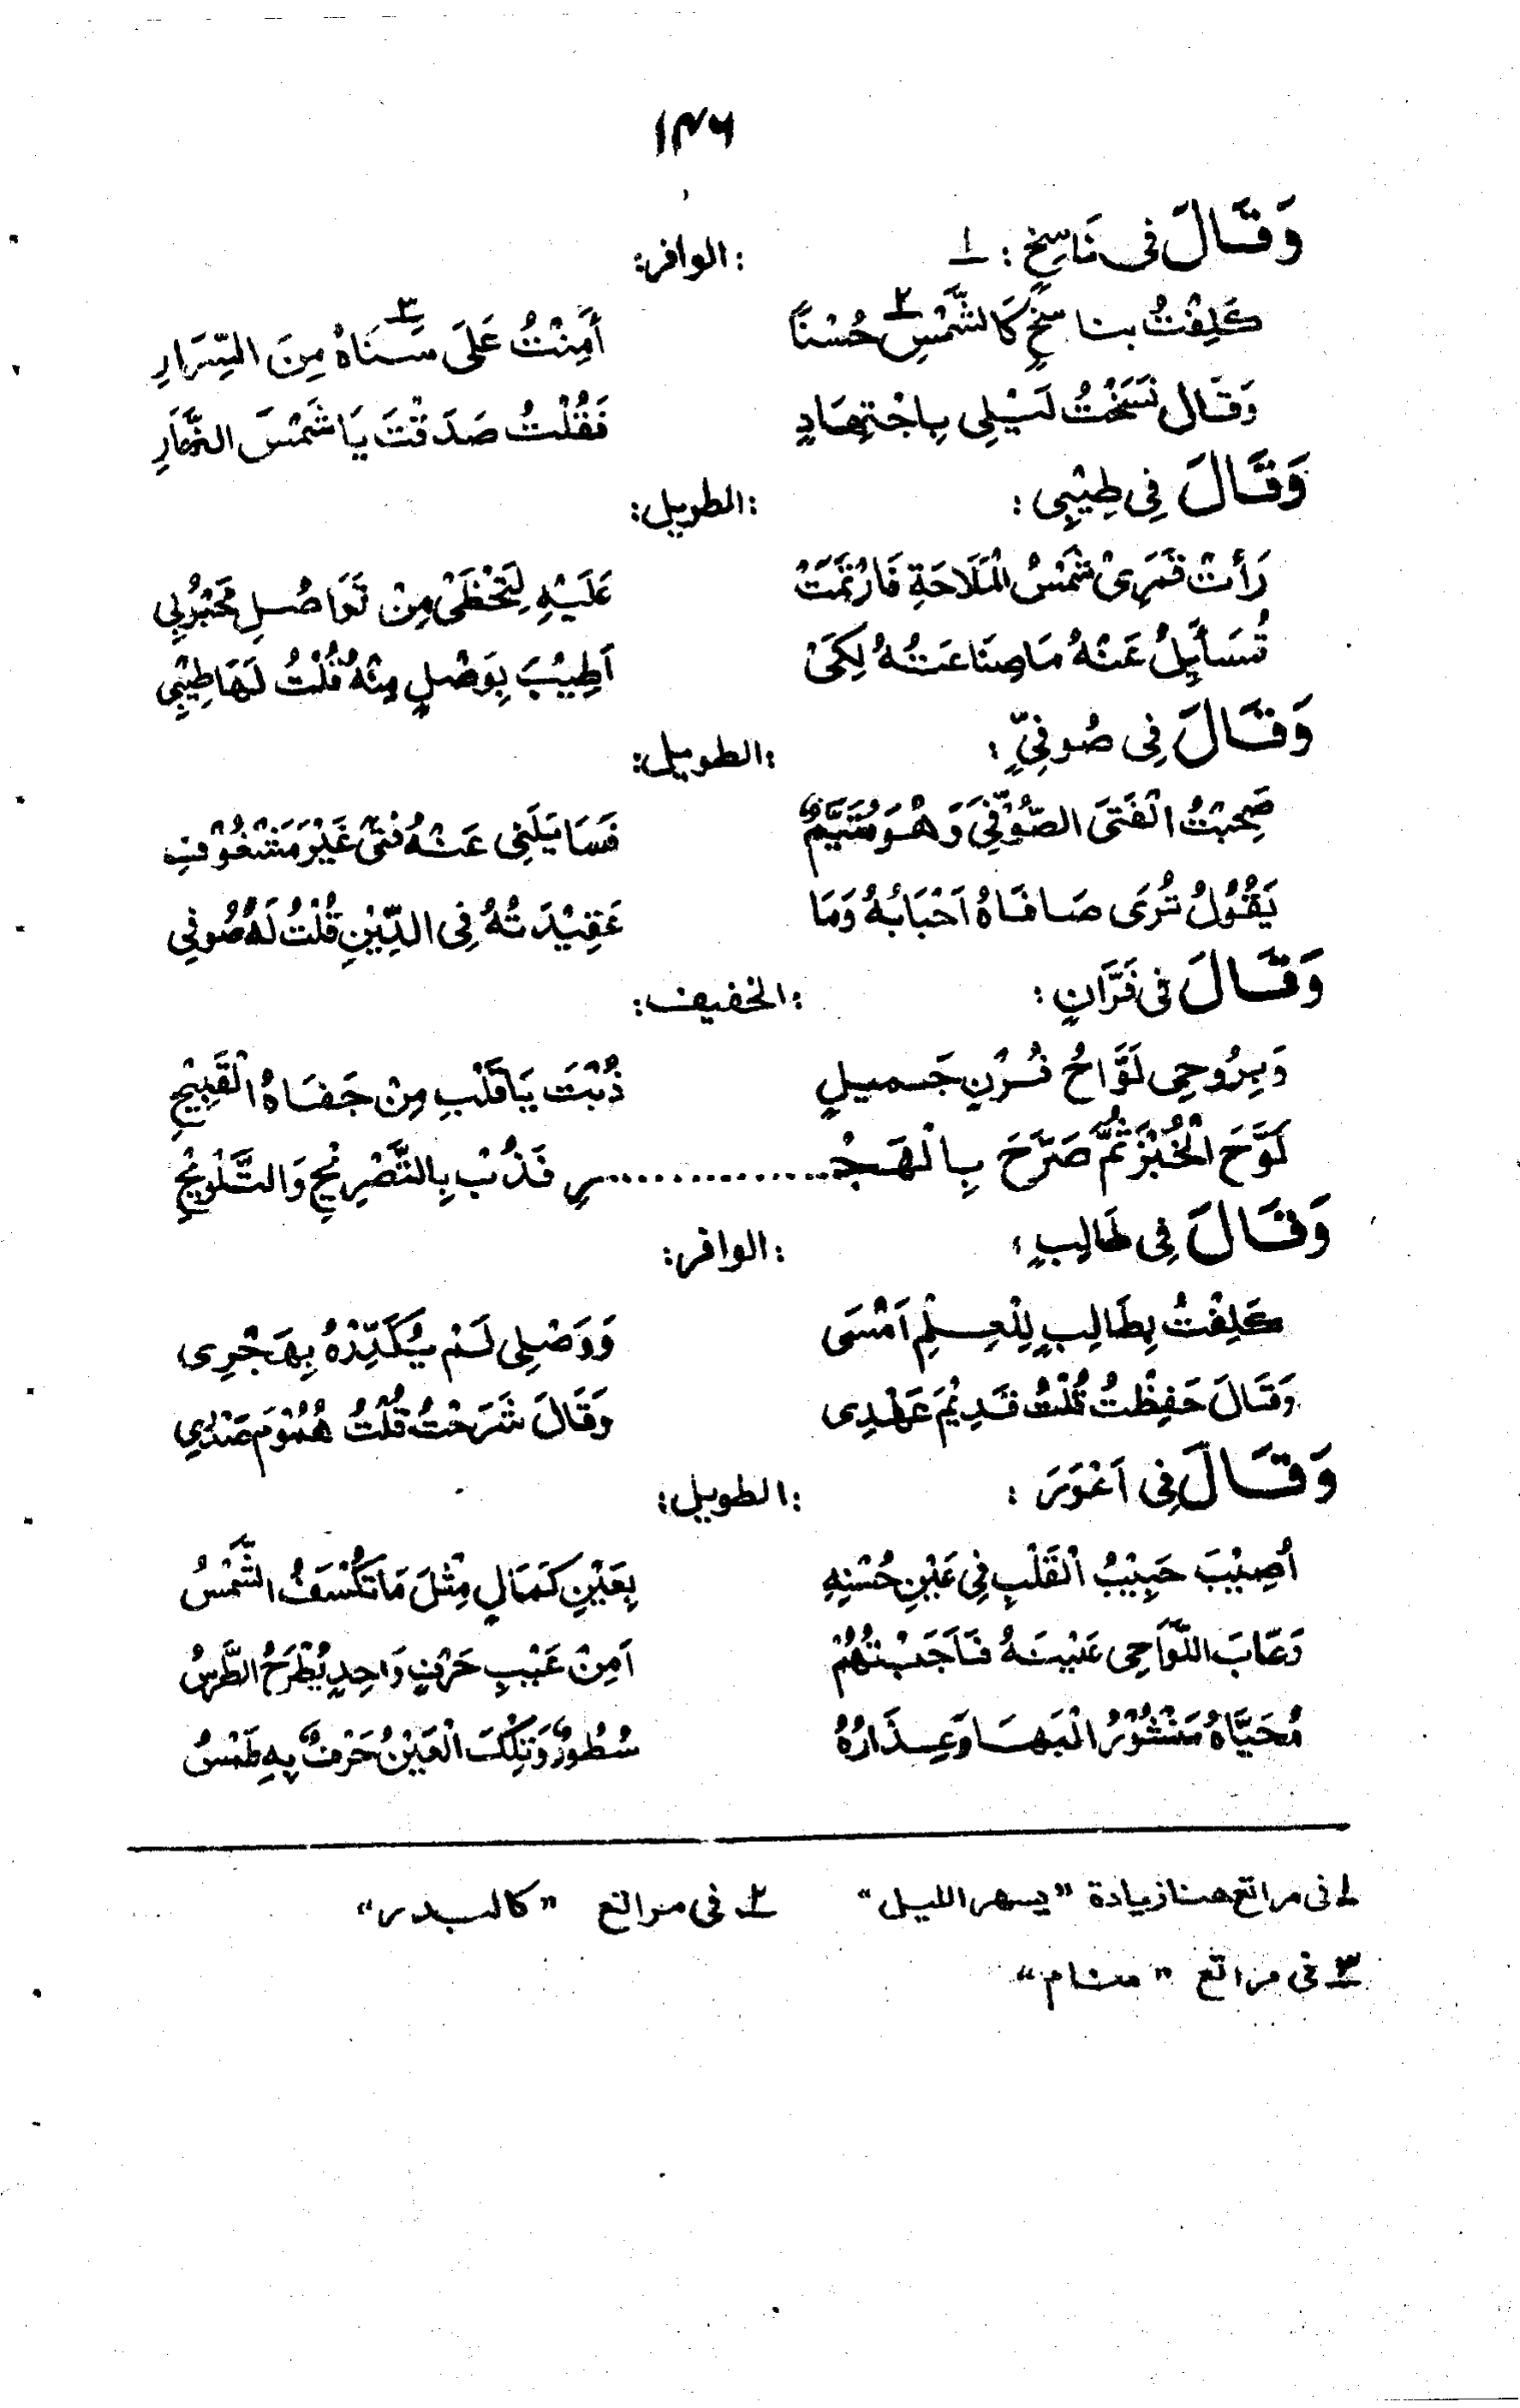 ١٣٦
وَقَالَ فى نَاسِخٍ : ١ :الوافر:
كَلِفْتُ بناسِخٍ كَالشَّمْسِ ٢ حُسْنًا أَمِنْتُ عَلَى سَنَاهُ ٣ مِنَ السِّرَارِ
وَقَال نَسَخْتُ لَيْلِى بِاجْتِهَادٍ فَقُلْتُ صَدَقْتَ يَا شَمْسَ النَّهَارِ
وَقَالَ فِى طِيْبِى : :الطويل:
رَأَتْ قَمَرِىْ شَمْسُ الْمَلَاحَةِ فَارْتَمَتْ عَلَيْهِ لِتَحْظَىْ مِنْ تَوَاصُلِ
تُسَأِيلُ عَنْهُ مَا صِنَاعَتُهُ لِكَىْ اَطِيْبَ بِوَصْلٍ مِنْهُ قُلْتُ لَهَا طِيْبِى
وَقَالَ فِى صُوفِىٍّ : :الطويل:
صَحِبْتُ الْفَتَى الصُّوْفِّىَ وَهْوَ مُتَيَّمٌ فَسَايَلَنِى عَنْهُ فَتًى غَيْرَ مَشْغُوْفِ
يَقُوْلُ تُرَى صَافَاهُ اَحْبَابُهُ وَمَا عَقِيْدَتُهُ فِى الدِّيْنِ قُلْتُ لَهُ صُوفِي
وَقَالَ فى فَرَّانٍ : :الخفيف:
وَبِرُوحِى لَوَّاحُ فُرْنٍ جَميلٍ ذُبْتَ يَا قَلْبِ مِنْ جَفَاهُ الْقَبِيْحِ
لَوَّحَ الْخُبْزَ ثُمَّ صَرَّحَ بِالْهَجْـ.............ـرِ فَذُبْ بِالتَّصْرِيْحِ وَالتَّلْوِيْحِ
وَقَالَ فِى طَالِبٍ : :الوافر:
كَلِفْتُ بِطَالِبٍ لِلْعِلْمِ اَمْسَى وَوَصْلِى لَمْ يُكَدِّرْهُ بِهَجْرِى
وَقَالَ حَفِظْتُ قُلْتُ قَدِيْمَ عَهْدِى وَقَالَ شَرَحْتُ قُلْتُ هُمُوْمَ صَدْرِي
وَقَالَ فِى اَعْوَرَ : :الطويل:
اُصِيْبَ حَبِيْبُ الْقَلْبِ فِى عَيْنِ حُسْنِهِ بِعَيْنِ كَمَالٍ مِثْلَ مَا تَكْسَفُ الشَّمْسُ
وَعَابَ اللَّوَاحِى عَيْبَهُ فَاَجَبْتُهُمْ اَمِنْ عَيْبِ حَرْفٍ وَاحِدٍ يُطْرَحُ الطَّرْسُ
مُحَيَّاهُ مَنْثُوْرُ الْبَهَا وَعِذَارُهُ سُطُورٌ وَتِلْكَ الْعَيْنُ حَرْفٌ بِهِ طَمْسُ
١ فى مراتع هنا زيادة "يسهر الليل" ٢ فى مراتع "كالبدر"
٣ فى مراتع